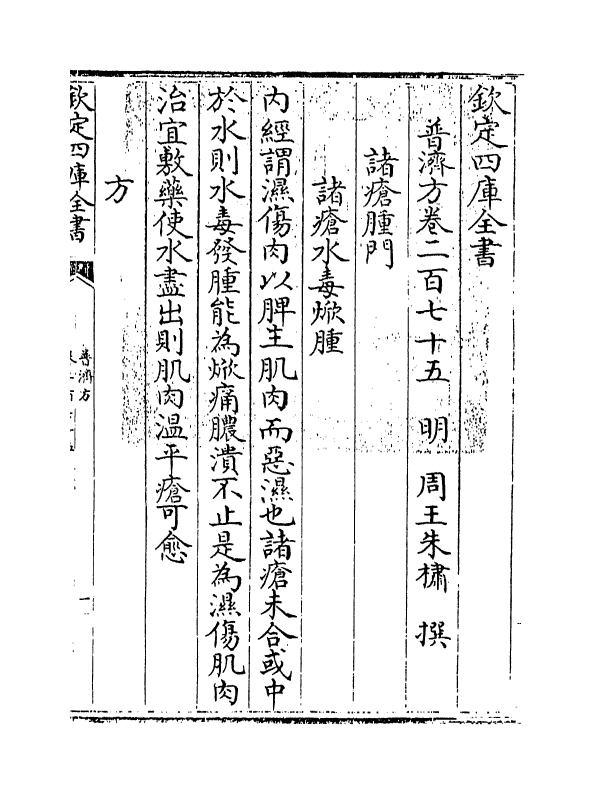 欽定四庫全書
普濟方卷二百七十五 明 周王朱橚 撰
諸瘡腫門
諸瘡水毒焮腫
内經謂濕傷肉以脾主肌肉而惡濕也諸瘡未合或中
於水則水毒發腫能為焮痛膿潰不止是為濕傷肌肉
治宜敷藥使水盡出則肌肉温平瘡可愈
方
欽定四庫全書
普濟方
一